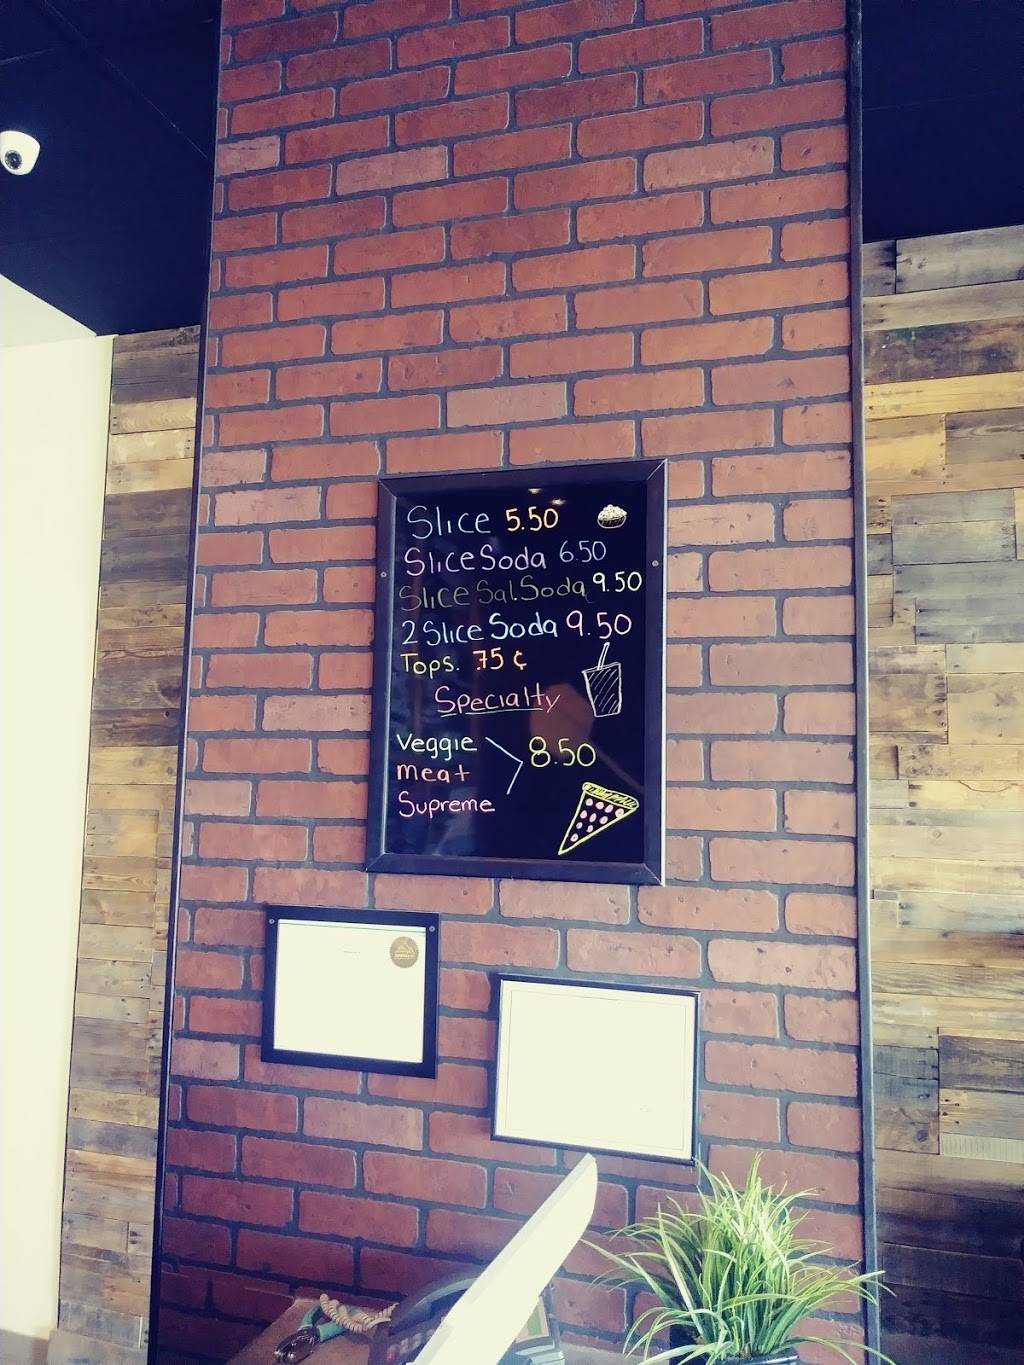 Slice 5.50
Slice Soda 6.50
Slice Sal. Soda 9.50
2 Slice Soda 9.50
Tops. .75 ¢
Specialty
Veggie
meat 8.50
Supreme